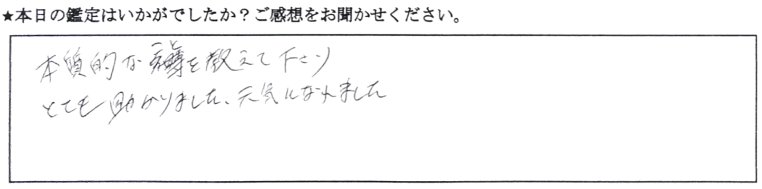 ★本日の鑑定はいかがでしたか？ご感想をお聞かせください。
本質的な事を教えて下さり
とても助かりました、元気になれました